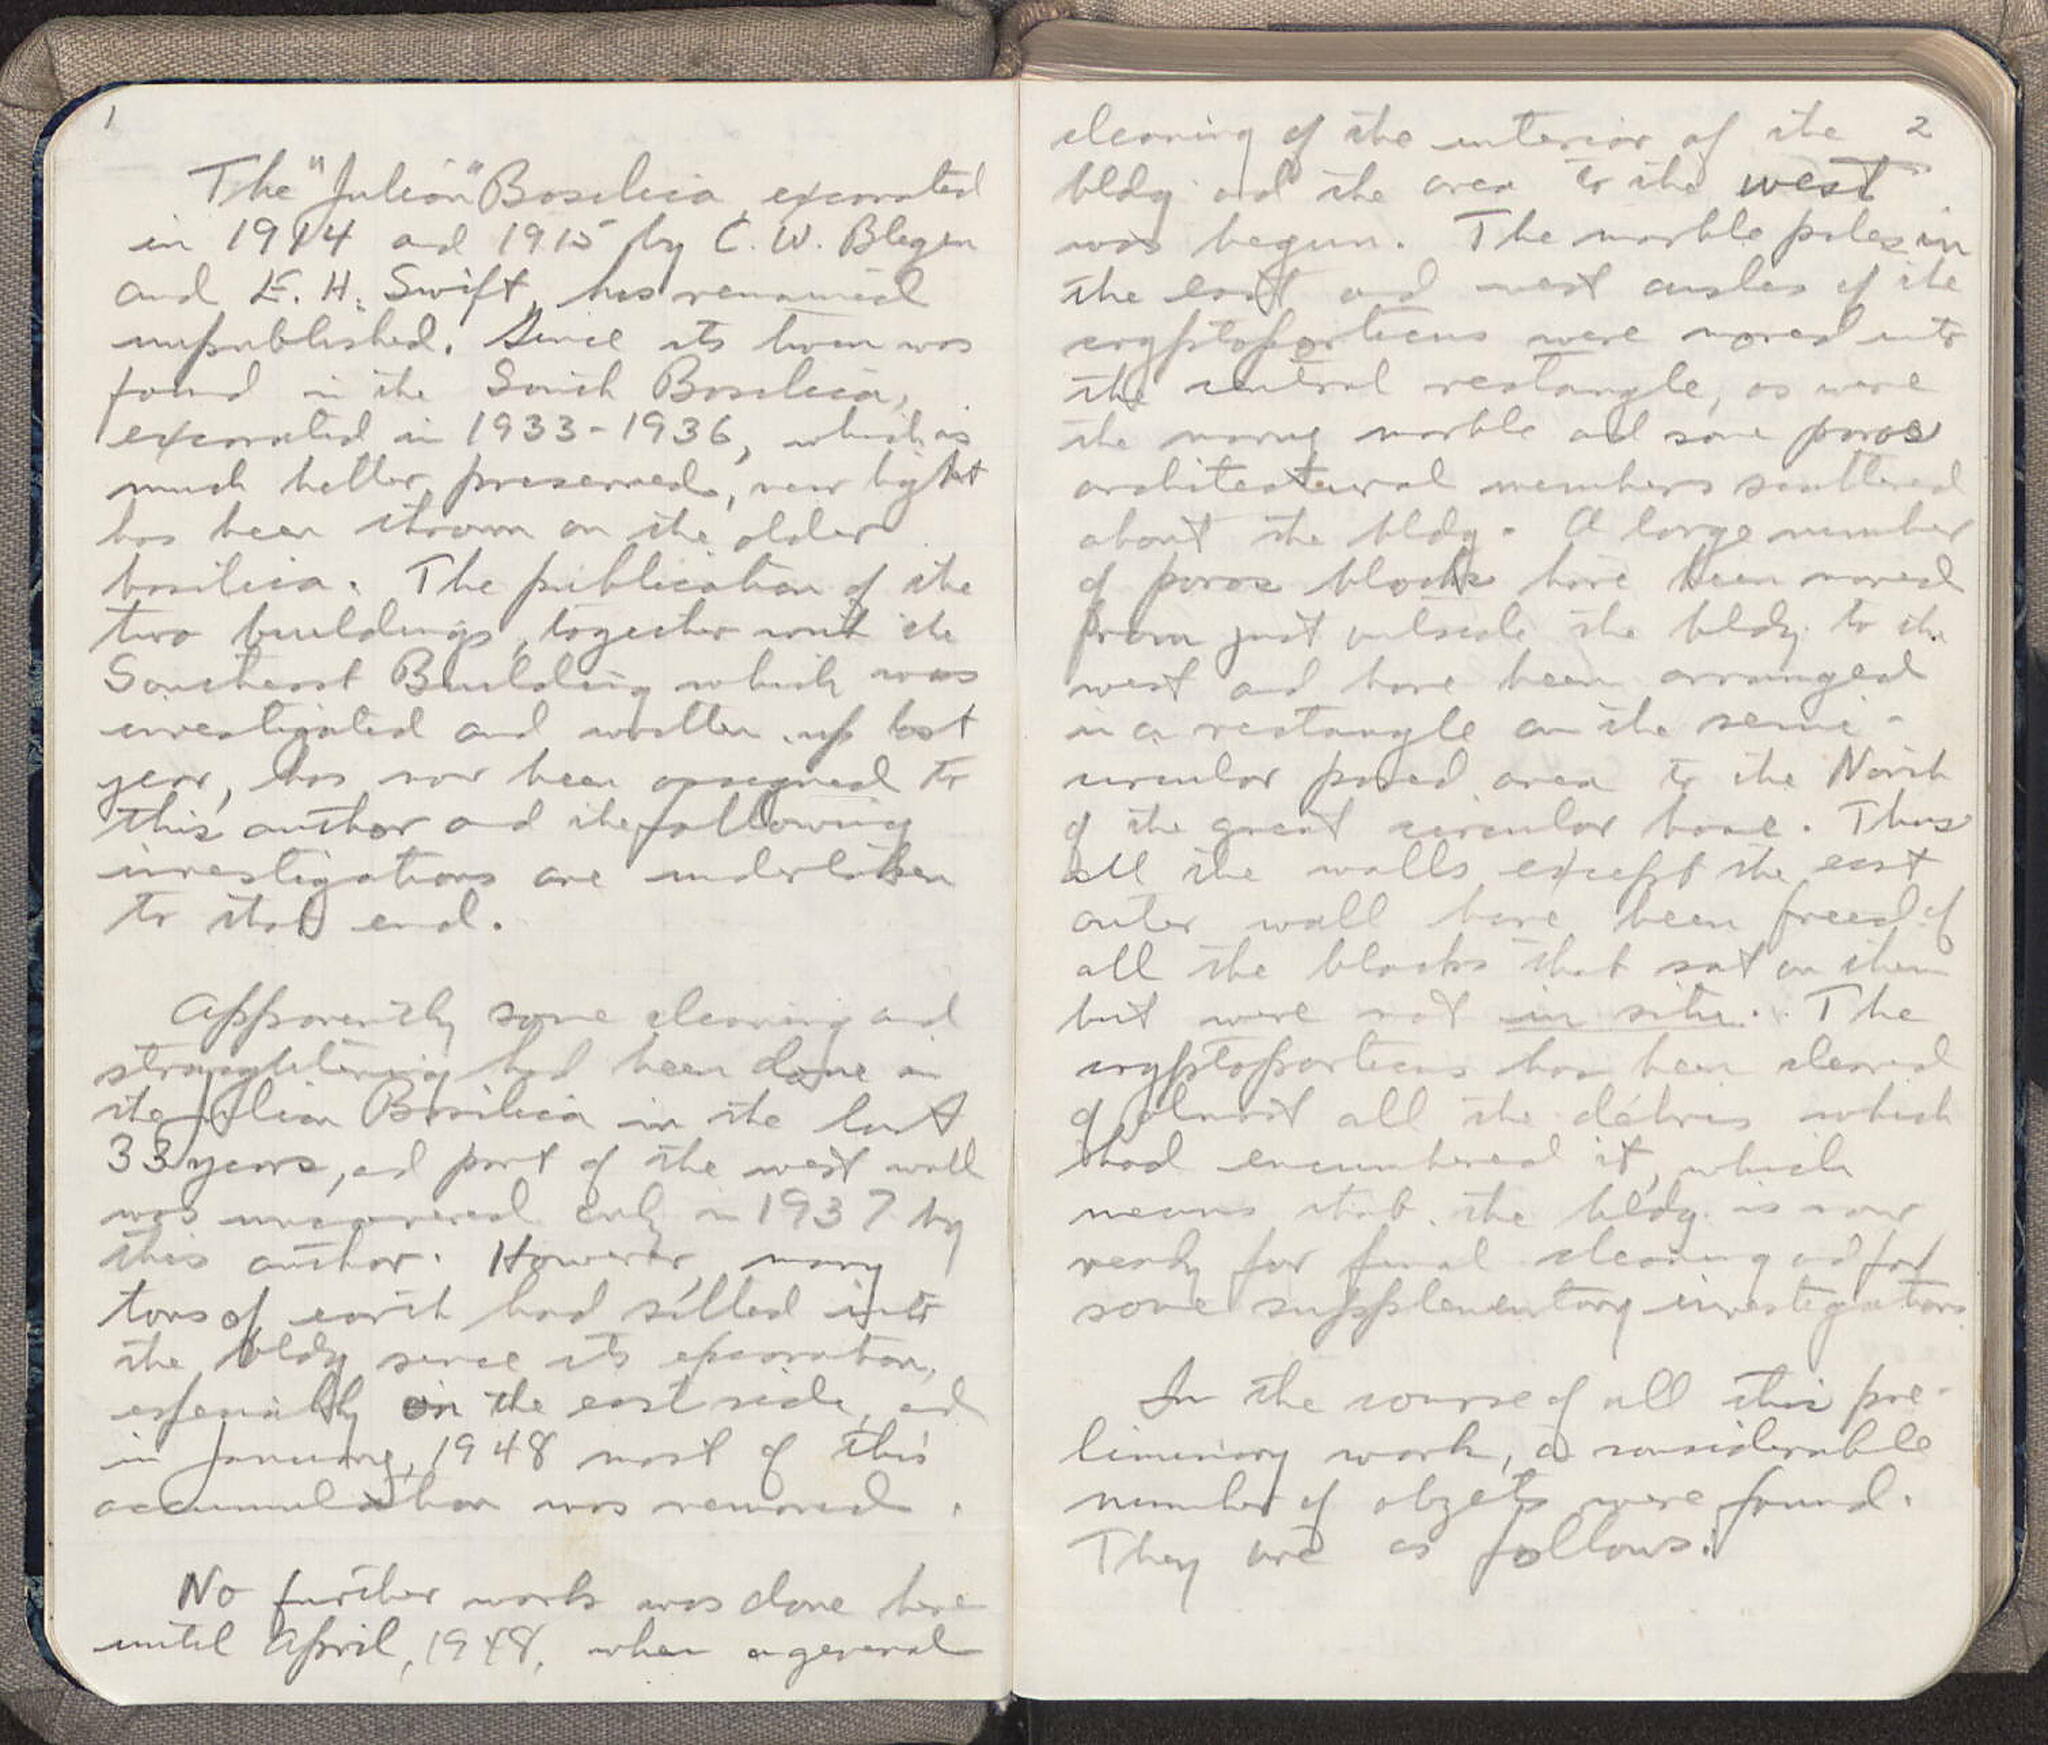 1
The "Julian" Basilica, excavated
in 1914 and 1915 by C. W. Blegen
and E. H. Swift, has remained
unpublished. Since its twin was
found in the South Basilica,
excavated in 1933-1936, which is
much better preserved, new light
has been thrown on the older
basilica. The publication of the
two buildings, together with the
Southeast Building which was
investigated and written up last
year, has now been assigned to
this author and the following
investigations are undertaken
to that end.
Apparently some cleaning and
straightening had been done in
the Julian Basilica in the last
33 years, and part of the west wall
was uncovered only in 1937 by
this author. However, many
tons of earth had silted into
the bldg since its excavation,
especially on the east side, and
in January, 1948 most of this
accumulation was removed.
No further work was done here
until April, 1948, when a general
2
cleaning of the interior of the
bldg and the area to the west
was begun. The marble piles in
the east and west angles of the
cryptoporticus were moved into
the central rectangle, as were
the many marble and some poros
architectural members scattered
about the bldg. A large number
of poros blocks have been moved
from just outside the bldg. to the
west and have been arranged
in a rectangle on the semi-
circular paved area to the North
of the great circular base. Thus
all the walls except the east
outer wall have been freed of
all the blocks that sat on them
but were not in situ. The
cryptoporticus has been cleared
of almost all the débris which
had encumbered it, which
means that the bldg. is now
ready for final cleaning and for
some supplementary investigations.
In the course of all this pre-
liminary work, a considerable
number of objets were found.
They are as follows: